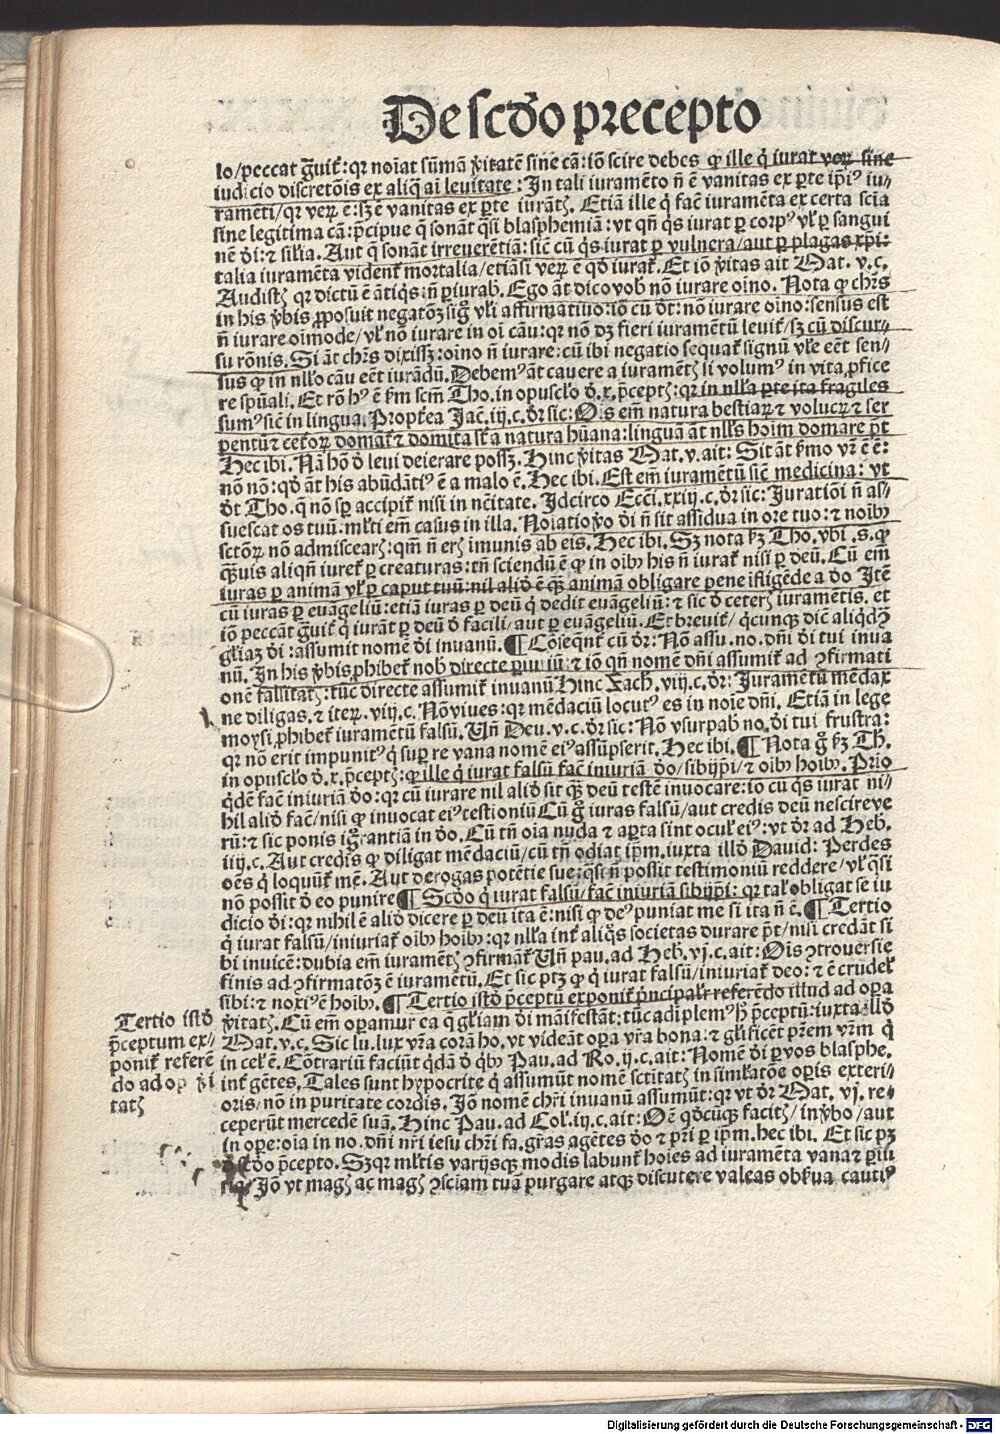 De scd̄o precepto
lo/peccat g̃uit̃: qr noīat sūmā v̓itatē sine cā: iō scire debes ꝙ ille q̓ iurat verꝝ sine
iudicio discretōis ex aliq̃ ai leuitate: In tali iuramēto ñ ē vanitas ex ꝑte ip̄iꝰ iu⸗
ramēti/qr verꝝ ē: sꝫ ē vanitas ex ꝑte iurātꝭ. Etiā ille q̓ facĩ iuramēta ex certa sciā
sine legitima cā: p̄cipue q̃ sonāt q̃si blasphemiā: vt qñ q̓s iurat ꝑ corpꝰ vl̓ ꝑ sangui
nē d̓i: ⁊ silia. Aut q̃ sonāt irreuerētiā: sic̄ cū q̓s iurat ꝑ vulnera/aut ꝑ plagas xp̄i:
talia iuramēta vident̃ mortalia/etiāsi verꝝ ē qd̓ iurat̃. Et iō v̓itas ait Mat. v. c.
Audistꝭ qr dictū ē ātiq̓s: ñ ꝑiurab. Ego āt dico vob̓ nō iurare oīno. Nota ꝙ chr̄s
in his v̓bis ꝓposuit negatōꝫ sig̓ vl̓i affirmatiuo: iō cū d̓t: nō iurare oīno: sensus est
ñ iurare oīmode/vl̓ nō iurare in oī cāu: qr nō dꝫ fieri iuramētū leuit̃/sꝫ cū discur⸗
su rōnis. Si āt chr̄s dixissꝫ: oīno ñ iurare: cū ibi negatio sequat̃ signū vl̓e eēt sen⸗
sus ꝙ in nl̓lo cāu eēt iurādū. Debemꝰ āt cauere a iuramētꝭ si volumꝰ in vita ꝓfice
re spūali. Et rō hꝰ ē ẜm scm̄ Tho. in opusclo d̓. x. p̄ceptꝭ: qr in nl̓la ꝑte ita fragiles
sumꝰ sic̄ in lingua. Propt̃ea Jac. iij. c. d̄r sic: Oīs em̄ natura bestiaꝝ ⁊ volucrꝝ ⁊ ser
pentū ⁊ cet̃oꝝ domat̃ ⁊ domita s̄t a natura hūana: linguā āt nl̓ls hoīm domare p̄t
Hec ibi. Nā hō d̓ leui deierare possꝫ. Hinc v̓itas Mat. v. ait: Sit āt ẜmo vr̄ ē ē:
nō nō: qd̓ āt his abūdātiꝰ ē a malo ē. Hec ibi. Est em̄ iuramētū sic̄ medicina: vt
d̓t Tho. q̃ nō sp̄ accipit̃ nisi in nc̄itate. Idcirco Ecci. xxiij. c. d̄r sic: Iuratiōi ñ as⸗
suescat os tuū: ml̓ti em̄ casus in illa. Noīatio v̓o d̓i ñ sit assidua in ore tuo: ⁊ noībꝰ
sctōꝝ nō admiscearꝭ: qm̄ ñ erꝭ imunis ab eis. Hec ibi. Sꝫ nota ẜꝫ Tho. vbi. s. ꝙ
q̃uis aliqñ iuret̃ ꝑ creaturas: tñ sciendū ē ꝙ in oībꝰ his ñ iurat̃ nisi ꝑ deū. Cū em̄
iuras ꝑ animā vl̓ ꝑ caput tuū: nil aliō ē q̃ꝫ animā obligare pene īfligēde a d̓o Itē
cū iuras ꝑ euāgeliū: etiā iuras ꝑ deū q̓ dedit euāgeliū: ⁊ sic d̓ ceterꝭ iuramētis. et
iō peccāt g̃uit̃ q̓ iurāt ꝑ deū d̓ facili/aut ꝑ euāgeliū. Et breuit̃/q̓cunqꝫ dic̄t aliqd̓ꝫ
gl̓iaꝫ d̓i: assumit nomē d̓i inuanū. ¶ Cōseqñt̃ cū d̄r: Nō assu. no. dn̄i d̓i tui inua
nū. In his v̓bis ꝓhibet̃ nob̓ directe ꝑiuriū: ⁊ iō qñ nomē dn̄i assumit̃ ad ꝯfirmati
onē falsitatꝭ: tūc directe assumit̃ inuanū Hinc Zach. viij. c. d̄r: Iuramētū mēdax
ne diligas. ⁊ iteꝝ. viij. c. Nō viues: qr mēdaciū locutꝰ es in noīe dn̄i. Etiā in lege
moysi ꝓhibet̃ iuramētū falsū. Vñ Deu. v. c. d̄r sic: Nō vsurpab̓ no. d̓i tui frustra:
qr nō erit impunitꝰ q̓ suꝑ re vana nomē eiꝰ assūpserit. Hec ibi. ¶ Nota g̓ ẜꝫ Th.
in opusclo d̓. x. p̄ceptꝭ: ꝙ ille q̓ iurat falsū facĩ iniuriā d̓o/sibijp̄i/⁊ oībꝰ hoībꝰ. Prio
q̓dē facĩ iniuriā d̓o: qr cū iurare nil aliō sit qꝫ deū testē inuocare: iō cū q̓s iurat ni⸗
hil aliō facĩ/nisi ꝙ inuocat eiꝰ testioniū Cū g̓ iuras falsū/aut credis deū nescire ve
rū: ⁊ sic ponis ig̓rantiā in d̓o. Cū tñ oīa nuda ⁊ aꝑta sint ocul̓ eiꝰ: vt d̄r ad Heb.
iiij. c. Aut credis ꝙ diligat mēdaciū/cū tñ odiat ip̄m. iuxta illō Dauid: Perdes
oēs q̓ loquūt̃ mē. Aut derogas potētie sue: q̃si ñ possit testimoniū reddere/vl̓ q̃si
nō possit d̓ eo punire ¶ Scd̓o q̓ iurat falsū/facĩ iniuriā sibijp̄i: qr tal̓ obligat se iu
dicio d̓i: qr nihil ē aliō dicere ꝑ deū ita ē: nisi ꝙ deꝰ puniat me si ita ñ ē. ¶ Tertio
q̓ iurat falsū/iniuriat̃ oībꝰ hoībꝰ: qr nl̓la int̃ aliq̓s societas durare p̄t/nisi credāt si
bi inuicē: dubia em̄ iuramētꝭ ꝯfirmāt̃ Vñ pau. ad Heb. vj. c. ait: Oīs ꝯtrouersie
finis ad ꝯfirmatōꝫ ē iuramētū. Et sic ptꝫ ꝙ q̓ iurat falsū/iniuriat̃ deo: ⁊ ē crudel̓
sibi: ⁊ noxiꝰ ē hoībꝰ. ¶ Tertio istō p̄ceptū exponit̃ p̄ncipal̓r referēdo illud ad oꝑa
v̓itatꝭ. Cū em̄ oꝑamur ea q̃ gl̓iam d̓i māifestāt: tūc adīplemꝰ h̓ p̄ceptū: iuxta illō
Mat. v. c. Sic lu. lux vr̄a corā ho. vt videāt oꝑa vr̄a bona: ⁊ gl̓ificēt pr̄em vr̄m q̓
in cel̓ ē. Cōtrariū faciūt q̓dā d̓ q̓bꝰ Pau. ad Ro. ij. c. ait: Nomē d̓i ꝑ vos blasphe.
int̃ gētes. Tales sunt hypocrite q̓ assumūt nomē sctitatꝭ in simlatōe oꝑis exteri⸗
oris/nō in puritate cordis. Iō nomē chr̄i inuanū assumūt: qr vt d̄r Mat. vj. re⸗
ceperūt mercedē suā. Hinc Pau. ad Col̓. iij. c. ait: Oē qd̓cūqꝫ facitꝭ/in v̓bo/aut
in oꝑe: oīa in no. dn̄i nr̄i iesu chr̄i fa. gr̄as agētes d̓o ⁊ pr̄i ꝑ ip̄m. hec ibi. Et sic pꝫ
d̓ scd̓o p̄cepto. Sꝫ qr ml̓tis varijsqꝫ modis labunt̃ hoīes ad iuramēta vana ⁊ ꝑiu
Iō vt magꝭ ac magꝭ ꝯsciam tuā purgare atqꝫ discutere valeas obẜua cautiꝰ
Tertio istō
p̄ceptum ex⸗
ponit̃ referē
do ad oꝑ v̓i
tatꝭ
Digitalisierung gefördert durch die Deutsche Forschungsgemeinschaft - DFG